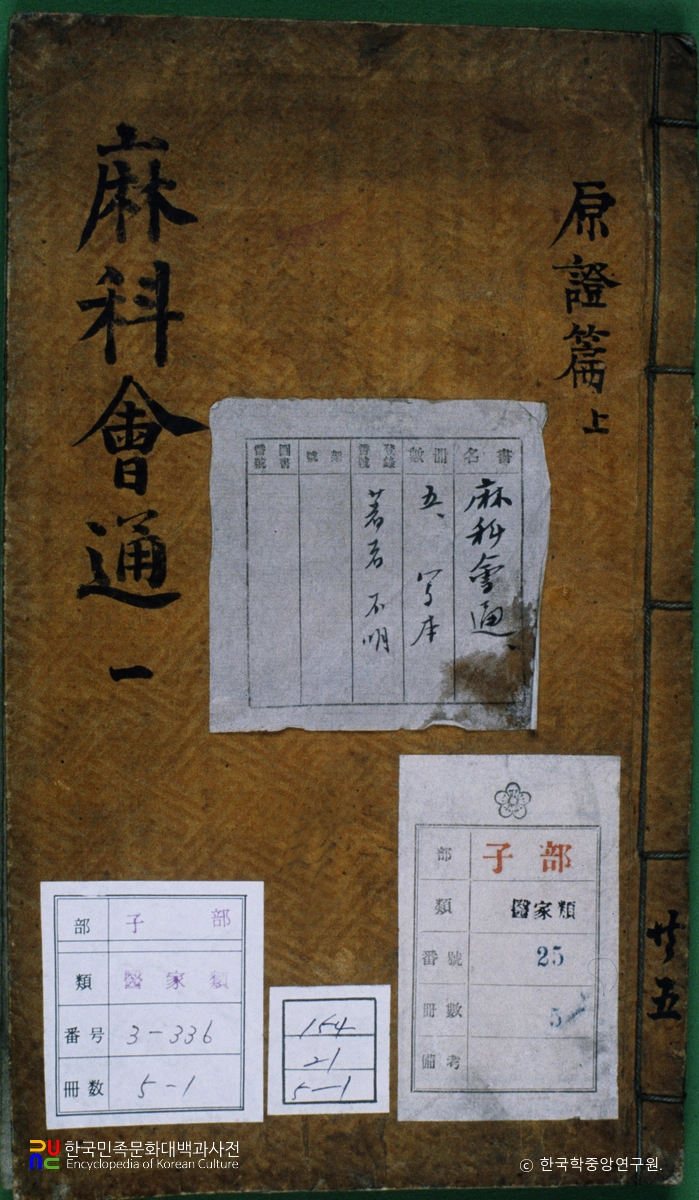 麻科會通 一
原證篇 上
書名
冊數
登錄番號
架號
圖書番號
麻科會通、
五、写本
著者不明
部 子部
類 醫家類
番號 25
冊數 5
備考
部 子部
類 醫家類
番号 3-336
冊数 5-1
154
21
5-1
共五
한국민족문화대백과사전
Encyclopedia of Korean Culture
© 한국학중앙연구원.